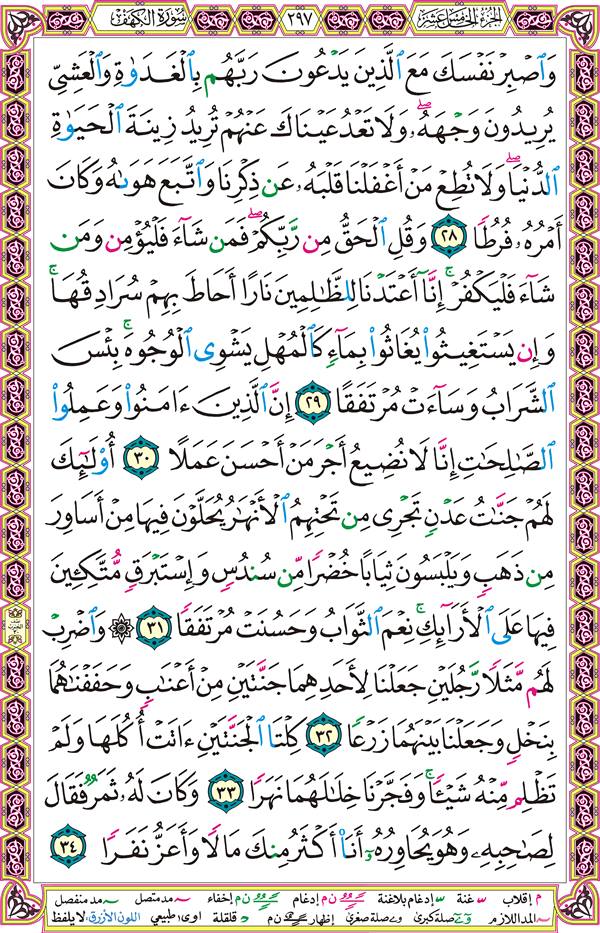 الجزء الخامس عشر ٢٩٧ سورة الكهف
وَٱصۡبِرۡ نَفۡسَكَ مَعَ ٱلَّذِينَ يَدۡعُونَ رَبَّهُم بِٱلۡغَدَوٰةِ وَٱلۡعَشِيِّ
يُرِيدُونَ وَجۡهَهُۥۖ وَلَا تَعۡدُ عَيۡنَاكَ عَنۡهُمۡ تُرِيدُ زِينَةَ ٱلۡحَيَوٰةِ
ٱلدُّنۡيَاۖ وَلَا تُطِعۡ مَنۡ أَغۡفَلۡنَا قَلۡبَهُۥ عَن ذِكۡرِنَا وَٱتَّبَعَ هَوَىٰهُ وَكَانَ
أَمۡرُهُۥ فُرُطٗا ٢٨ وَقُلِ ٱلۡحَقُّ مِن رَّبِّكُمۡۖ فَمَن شَآءَ فَلۡيُؤۡمِن وَمَن
شَآءَ فَلۡيَكۡفُرۡۚ إِنَّآ أَعۡتَدۡنَا لِلظَّٰلِمِينَ نَارًا أَحَاطَ بِهِمۡ سُرَادِقُهَاۚ
وَإِن يَسۡتَغِيثُواْ يُغَاثُواْ بِمَآءٖ كَٱلۡمُهۡلِ يَشۡوِي ٱلۡوُجُوهَۚ بِئۡسَ
ٱلشَّرَابُ وَسَآءَتۡ مُرۡتَفَقًا ٢٩ إِنَّ ٱلَّذِينَ ءَامَنُواْ وَعَمِلُواْ
ٱلصَّٰلِحَٰتِ إِنَّا لَا نُضِيعُ أَجۡرَ مَنۡ أَحۡسَنَ عَمَلًا ٣٠ أُوْلَٰٓئِكَ
لَهُمۡ جَنَّٰتُ عَدۡنٖ تَجۡرِي مِن تَحۡتِهِمُ ٱلۡأَنۡهَٰرُ يُحَلَّوۡنَ فِيهَا مِنۡ أَسَاوِرَ
مِن ذَهَبٖ وَيَلۡبَسُونَ ثِيَابًا خُضۡرٗا مِّن سُندُسٖ وَإِسۡتَبۡرَقٖ مُّتَّكِـِٔينَ
فِيهَا عَلَى ٱلۡأَرَآئِكِۚ نِعۡمَ ٱلثَّوَابُ وَحَسُنَتۡ مُرۡتَفَقٗا ٣١ ۞ وَٱضۡرِبۡ
لَهُم مَّثَلٗا رَّجُلَيۡنِ جَعَلۡنَا لِأَحَدِهِمَا جَنَّتَيۡنِ مِنۡ أَعۡنَٰبٖ وَحَفَفۡنَٰهُمَا
بِنَخۡلٖ وَجَعَلۡنَا بَيۡنَهُمَا زَرۡعٗا ٣٢ كِلۡتَا ٱلۡجَنَّتَيۡنِ ءَاتَتۡ أُكُلَهَا وَلَمۡ
تَظۡلِم مِّنۡهُ شَيۡـٔٗاۚ وَفَجَّرۡنَا خِلَٰلَهُمَا نَهَرٗا ٣٣ وَكَانَ لَهُۥ ثَمَرٞ فَقَالَ
لِصَٰحِبِهِۦ وَهُوَ يُحَاوِرُهُۥٓ أَنَا۠ أَكۡثَرُ مِنكَ مَالٗا وَأَعَزُّ نَفَرٗا ٣٤
م إقلاب غنة إدغام بلاغنة ن م إدغام ن م إخفاء مد متصل مد منفصل
المد اللازم صلة كبرى صلة صغرى إظهار ن م قلقلة اوى طبيعي اللون الأزرق لا يلفظ